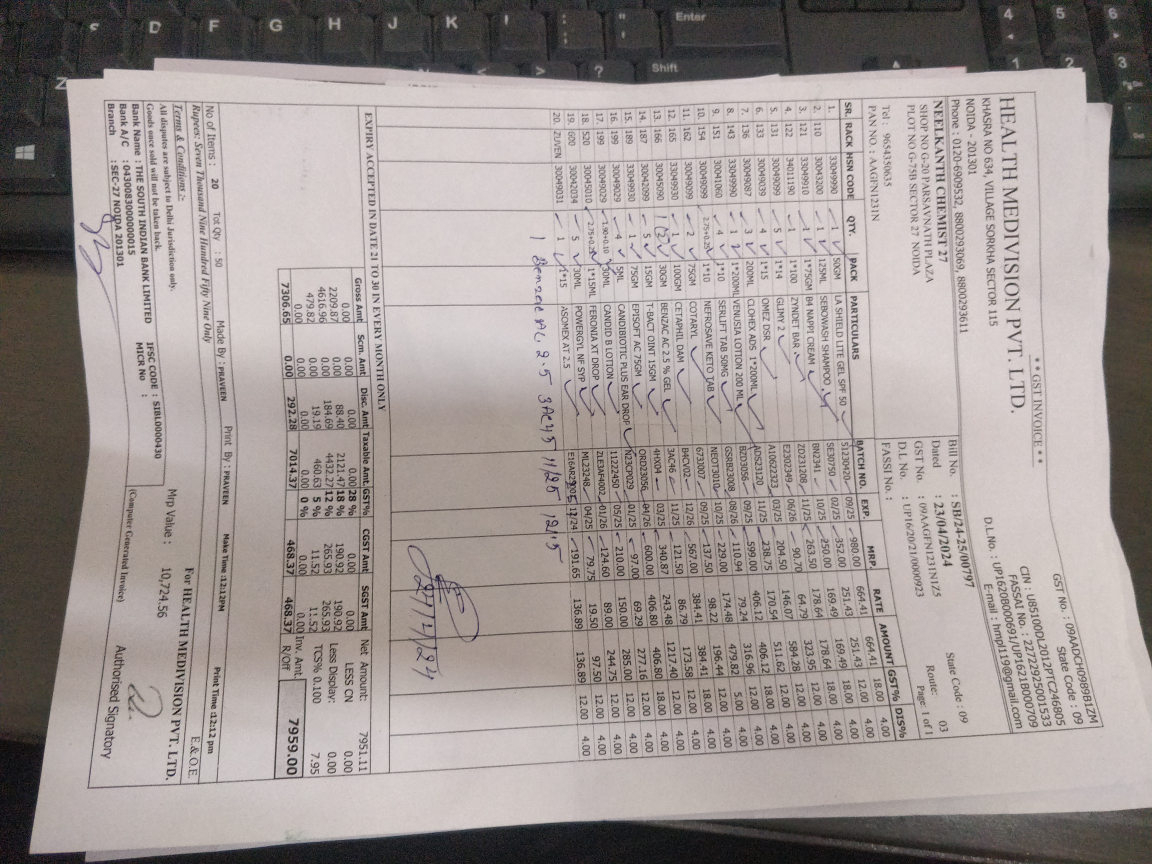 * * GST INVOICE * *
HEALTH MEDIVISION PVT. LTD.
KHASRA NO 634, VILLAGE SORKHA SECTOR 115
NOIDA - 201301
Phone : 0120-6909532, 8800293069, 8800293611
GST No. : 09AADCH0989B1ZM
State Code : 09
CIN : U85100DL2012PTC246805
FASSAI No. : 22722925001533
D.L.No. : UP1620B000691/UP1621B000709
E-mail : hmpl119@gmail.com
NEELKANTH CHEMIST 27
SHOP NO G-20 PARSAVNATH PLAZA
PLOT NO G-75B SECTOR 27 NOIDA
Tel : 9654350635
PAN NO. : AAGFN1231N
Bill No. : SB/24-25/00797
Dated : 23/04/2024
GST No. : 09AAGFN1231N1Z5
D.L No. : UP16/20/21/0000923
FASSI No. :
State Code : 09
Route: 03
Page: 1 of 1
SR. RACK HSN CODE QTY. PACK PARTICULARS BATCH NO. EXP. MRP. RATE AMOUNT GST% DIS%
1. 33049990 1 50GM LA SHIELD LITE GEL SPF 50 S1230420 09/25 980.00 664.41 664.41 18.00 4.00
2. 110 30043200 1 125ML SEBOWASH SHAMPOO SE30750 02/25 352.00 251.43 251.43 12.00 4.00
3. 121 33049910 1 1*75GM B4 NAPPI CREAM BN2341 10/25 250.00 169.49 169.49 18.00 4.00
4. 122 34011190 1 1*100 ZYNDET BAR ZD231208 11/25 263.50 178.64 178.64 18.00 4.00
5. 131 30049099 5 1*14 GLIMY 2 E2302349 06/26 90.70 64.79 323.95 12.00 4.00
6. 133 30049039 4 1*15 OMEZ DSR A10622323 03/25 204.50 146.07 584.28 12.00 4.00
7. 136 30049087 3 200ML CLOHEX ADS 1*200ML ADS23120 11/25 238.75 170.54 511.62 12.00 4.00
8. 143 33049990 1 1*200ML VENUSIA LOTION 200 ML BZD3026 09/25 599.00 406.12 406.12 18.00 4.00
9. 151 30041060 4 1*10 SERLIFT TAB 50MG GSRB23008 08/26 110.94 79.24 316.96 12.00 4.00
10. 154 30049099 2.75+0.25 1*10 NEFROSAVE KETO TAB NEDT3010 10/25 229.00 174.48 479.82 5.00 4.00
11. 162 30049099 2 75GM COTARYL 673007 09/25 137.50 98.22 196.44 12.00 4.00
12. 165 33049930 1 100GM CETAPHIL DAM B4CV002 12/26 567.00 384.41 384.41 18.00 4.00
13. 166 30045090 30GM BENZAC AC 2.5 % GEL 3AC46 11/25 121.50 86.79 173.58 12.00 4.00
14. 187 30042099 5 15GM T-BACT OINT 15GM 4HX04 03/25 340.87 243.48 1217.40 12.00 4.00
15. 189 33049930 1 75GM EPISOFT AC 75GM ORD23056 04/26 600.00 406.80 406.80 18.00 4.00
16. 199 30049029 4 5ML CANDIBIOTIC PLUS EAR DROP 01/25 97.00 69.29 277.16 12.00 4.00
17. 199 30049029 1.90+0.10 30ML CANDID B LOTTON 11222450 05/25 210.00 150.00 285.00 12.00 4.00
18. 520 30045010 2.75+0.25 1*15ML FERONIA XT DROP ZLE3AH4002 01/26 124.60 89.00 244.75 12.00 4.00
19. 600 30042034 5 30ML POWERGYL NF SYP ML23248 04/25 79.75 19.50 97.50 12.00 4.00
20. ZUVEN 30049031 1 1*15 ASOMEX AT 2.5 12/24 191.65 136.89 136.89 12.00 4.00
1 Benzac AC 2.5 3AC45 11/25 121.5
27/4/24
EXPIRY ACCEPTED IN DATE 21 TO 30 IN EVERY MONTH ONLY
Gross Amt Scm. Amt Disc. Amt Taxable Amt. GST% CGST Amt SGST Amt
0.00 0.00 0.00 0.00 28 % 0.00 0.00
2209.87 0.00 88.40 2121.47 18 % 190.92 190.92
4616.96 0.00 184.69 4432.27 12 % 265.93 265.93
479.82 0.00 19.19 460.63 5 % 11.52 11.52
0.00 0.00 0.00 0 0 % 0.00 0.00
7306.65 0.00 292.28 7014.37 468.37 468.37
Net Amount: 7951.11
LESS CN 0.00
Less Display: 0.00
TCS% 0.100 7.95
Inv. Amt.
R/Off 7959.00
No of Items : 20 Tot Qty : 50 Made By : PRAVEEN Print By : PRAVEEN Make Time :12:12PM Print Time :12:12 pm
Rupees: Seven Thousand Nine Hundred Fifty Nine Only
E.& O.E.
Terms & Conditions :-
All disputes are subject to Delhi Jurisdiction only.
Goods once sold will not be taken back.
Bank Name : THE SOUTH INDIAN BANK LIMITED IFSC CODE : SIBL0000430
Bank A/C : 0430083000000015 MICR No :
Branch : SEC-27 NOIDA 201301
Mrp Value : 10,724.56
For HEALTH MEDIVISION PVT. LTD.
(Computer Generated Invoice)
Authorised Signatory